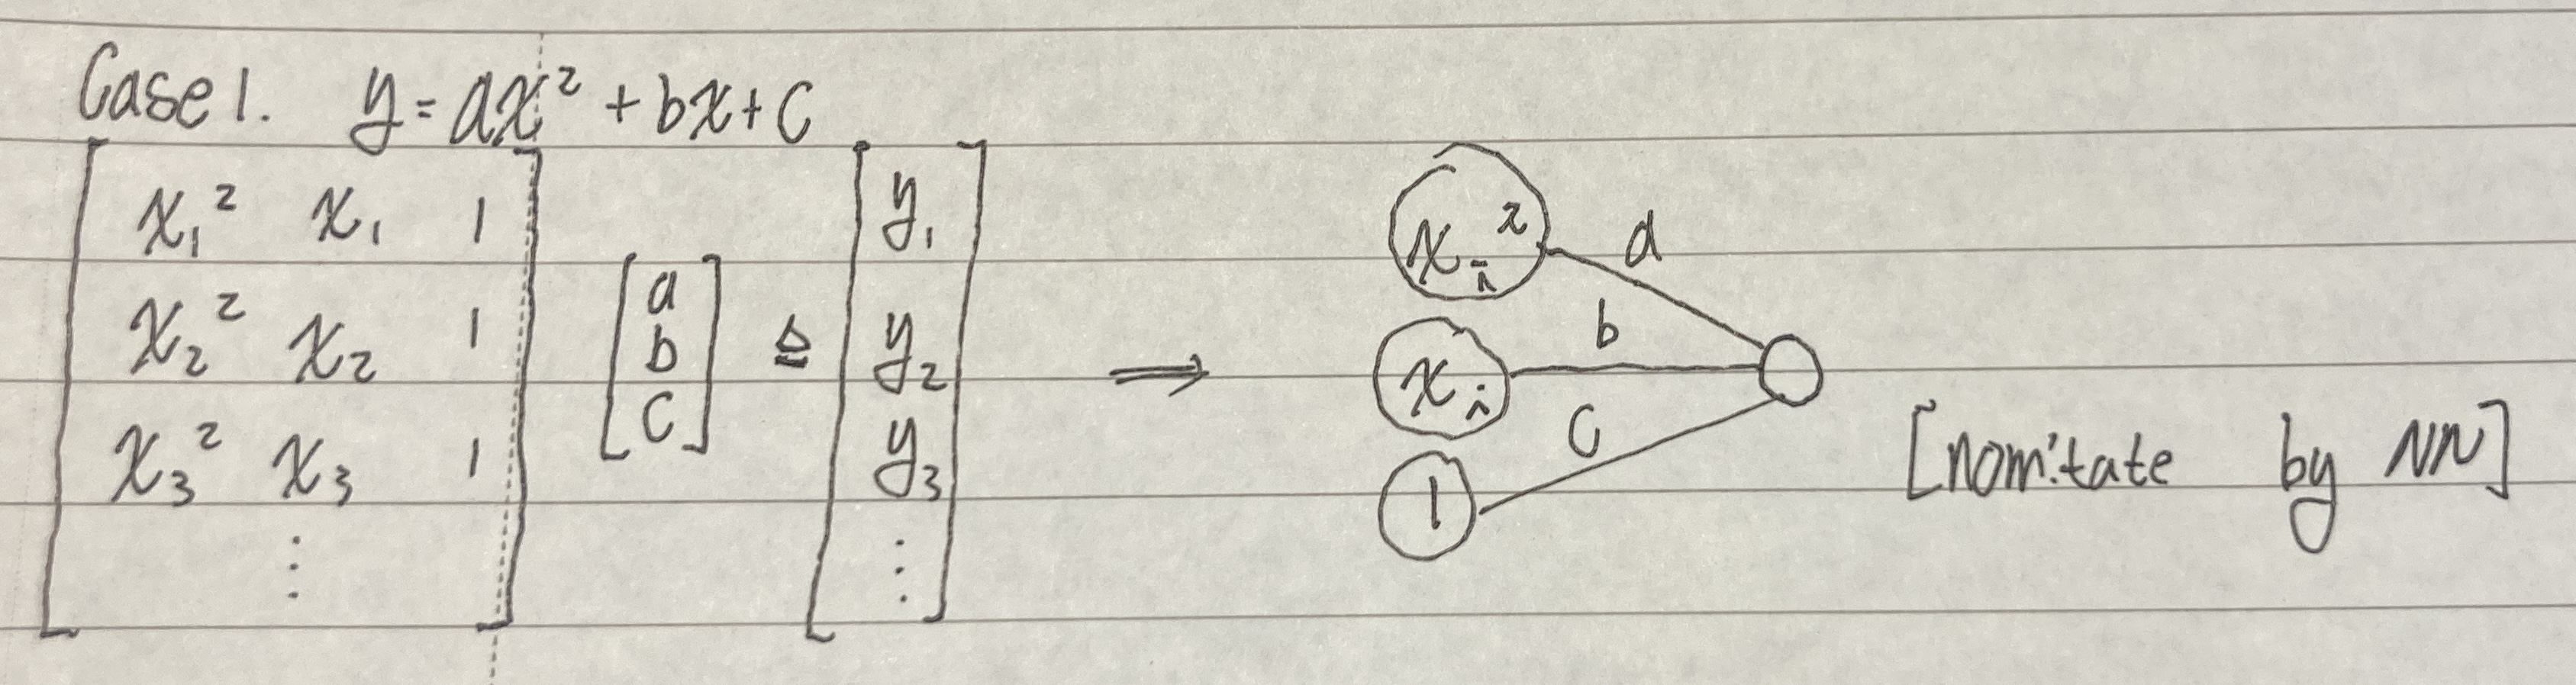 Case 1. y = ax² + bx + c
[ x₁² x₁ 1 ] [ a ] ≙ [ y₁ ]
[ x₂² x₂ 1 ] [ b ] [ y₂ ]
[ x₃² x₃ 1 ] [ c ] [ y₃ ]
⋮ ⋮
⇒
xᵢ² a
xᵢ b
1 c
[nomitate by NN]